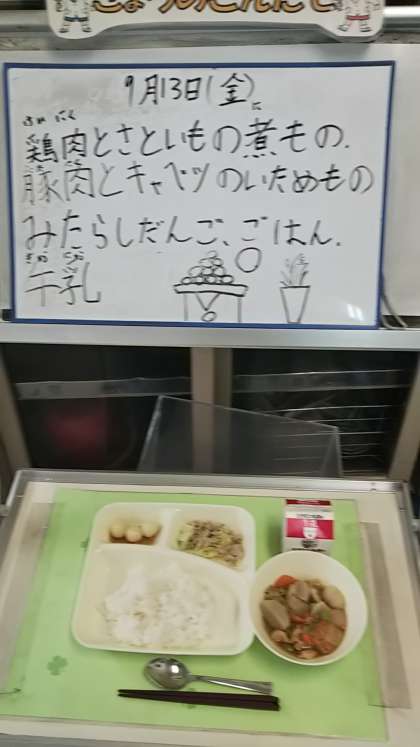 きょうのこんだて
9月13日(金)
に
鶏肉とさといもの煮もの、
豚肉とキャベツのいためもの
みたらしだんご、ごはん、
ぎゅう にゅう
牛乳